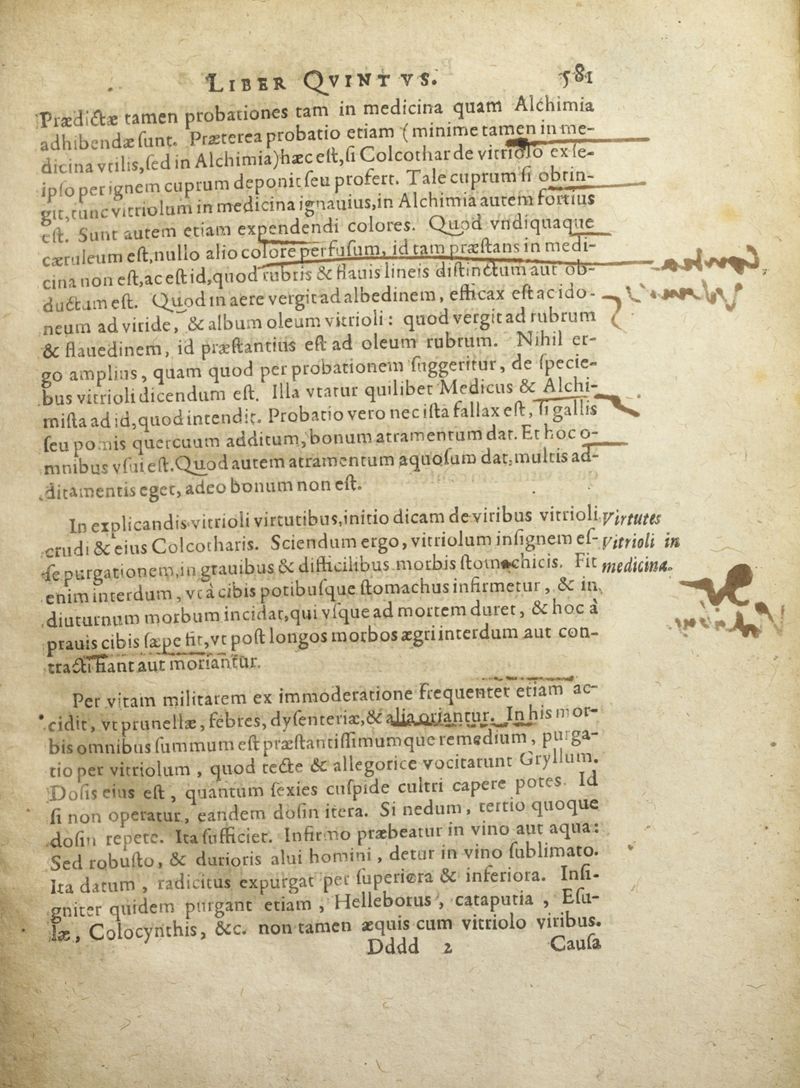 LIBER QVINTVS. 581
Prædictæ tamen probationes tam in medicina quam Alchimia
adhibendæ ſunt. Præterea probatio etiam (minime tamen in me-
dicina vtilis, ſed in Alchimia) hæc eſt, ſi Colcothar de vitriolo ex ſe-
ipſo per ignem cuprum deponit ſeu profert. Tale cuprum ſi obtin-
git, tunc vitriolum in medicina ignauius, in Alchimia autem fortius
eſt. Sunt autem etiam expendendi colores. Quod vndiquaque
cæruleum eſt, nullo alio colore perfuſum, id tam præſtans in medi-
cina non eſt, ac eſt id, quod rubris & flauis lineis diſtinctum aut ob-
ductum eſt. Quod in aere vergit ad albedinem, efficax eſt ac ido-
neum ad viride, & album oleum vitrioli: quod vergit ad rubrum
& flauedinem, id præſtantius eſt ad oleum rubrum. Nihil er-
go amplius, quam quod per probationem ſuggeritur, de ſpecie-
bus vitrioli dicendum eſt. Illa vtatur quilibet Medicus & Alchi-
miſta ad id, quod intendit. Probatio vero nec iſta fallax eſt, ſi gallis
ſeu pomis quercuum additum, bonum atramentum dat. Et hoc o-
mnibus vſui eſt. Quod autem atramentum aquoſum dat, multis ad-
ditamentis eget, adeo bonum non eſt.
In explicandis vitrioli virtutibus, initio dicam de viribus vitrioli
Virtutes
crudi & eius Colcotharis. Sciendum ergo, vitriolum inſignem eſ-
Vitrioli in
ſe purgationem, in grauibus & difficilibus morbis ſtomachicis. Fit
medicina.
enim interdum, vt à cibis potibuſque ſtomachus infirmetur, & in
diuturnum morbum incidat, qui vſque ad mortem duret, & hoc à
prauis cibis ſæpe fit, vt poſt longos morbos ægri interdum aut con-
tracti fiant aut moriantur.
Per vitam militarem ex immoderatione frequenter etiam ac-
cidit, vt prunellæ, febres, dyſenteriæ, & alia oriantur. In his mor-
bis omnibus ſummum eſt præſtantiſſimumque remedium, purga-
tio per vitriolum, quod recte & allegorice vocitarunt Gryllum.
Doſis eius eſt, quantum ſexies cuſpide cultri capere potes. Id
ſi non operatur, eandem doſin itera. Si nedum, tertio quoque
doſin repete. Ita ſufficiet. Infirmo præbeatur in vino aut aqua:
Sed robuſto, & durioris alui homini, detur in vino ſublimato.
Ita datum, radicitus expurgat per ſuperiora & inferiora. Inſi-
gniter quidem purgant etiam, Helleborus, cataputia, Eſu-
læ, Colocynthis, &c. non tamen æquis cum vitriolo viribus.
Dddd 2 Cauſa